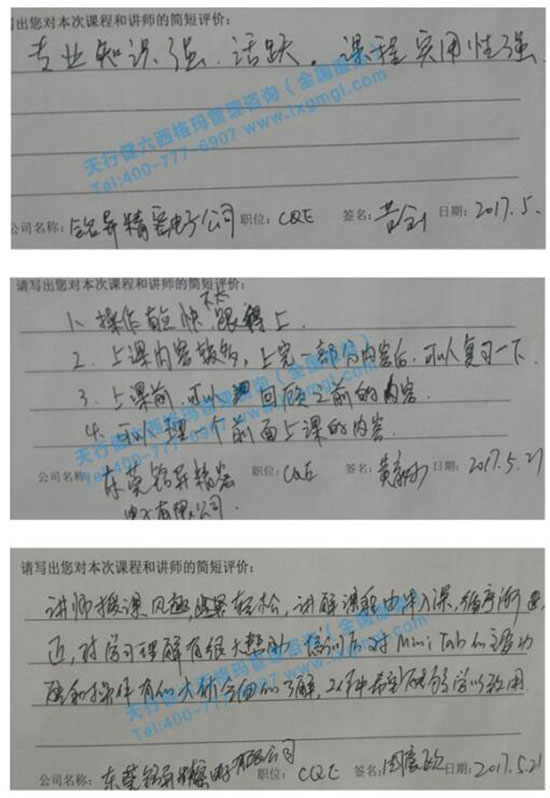 出您对本次课程和讲师的简短评价:
专业知识强、活跃。课程实用性强
天行健六西格玛管理咨询(全国服务)
Tel:400-777-6907 www.txgmgl.com
公司名称: 铭异精密电子公司 职位: CQE 签名: 日期: 2017.5.
请写出您对本次课程和讲师的简短评价:
1、操作有点快,不太跟得上
2、上课内容较多,上完一部分内容后,可以复习一下
3、上课前,可以回顾之前的内容.
4、可以理一个前面上课的内容.
公司名称: 东莞铭异精密 职位: CQE 签名: 日期: 2017.5.21
电子有限公司.
请写出您对本次课程和讲师的简短评价:
讲师授课风趣,轻松,讲解课程由浅入深,循序渐进
对学习理解有很大帮助、培训后对Mini Tab的主要功
能和操作有的了解,工作中希望能学以致用
天行健六西格玛管理咨询(全国服务)
Tel:400-777-6907 www.txgmgl.com
公司名称: 东莞铭异精密电子有限公司 职位: CQE 签名: 日期: 2017.5.21